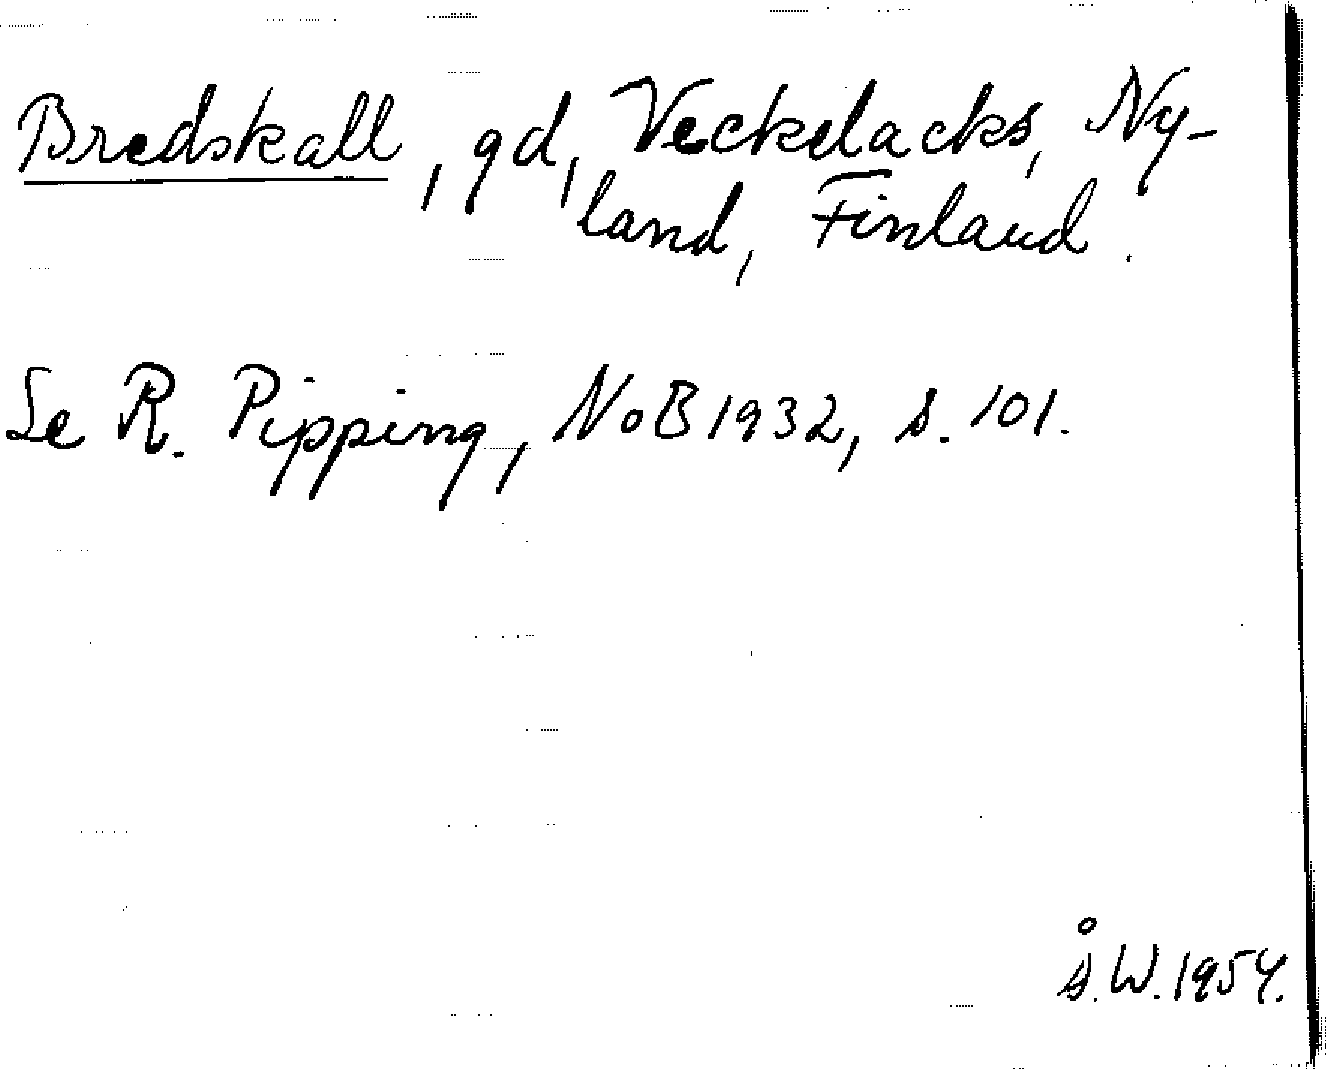 Bredskall, gd, Veckelacks, Ny-
land, Finland.
Se R. Pipping, NoB 1932, s. 101.
Å.W. 1954.